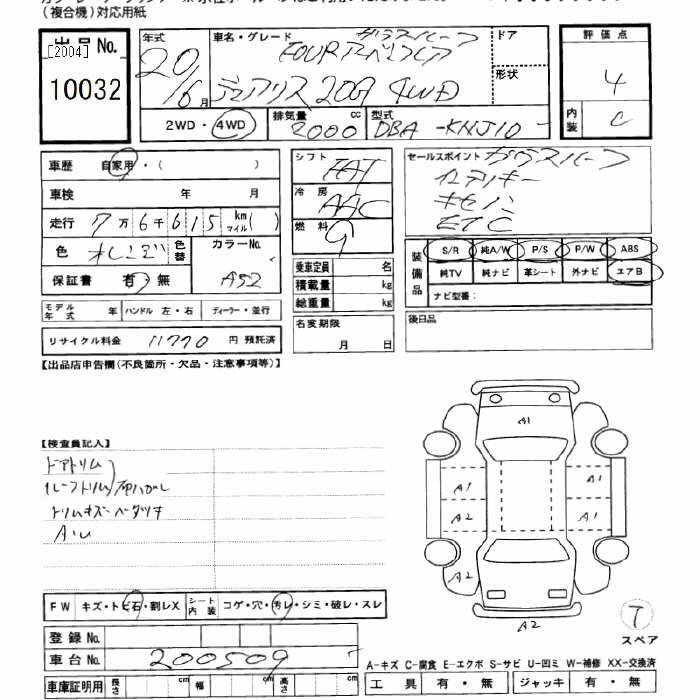 （複合機）対応用紙
出品No.
[2004]
10032
年式
20/6月
車名・グレード
ガラスルーフ
FOUR
ドア
形状
20G 4WD
2WD・4WD
排気量
2000 cc
型式
DBA-KNJ10
評価点
4
内装
C
車歴 自家用・（ ）
車検 年 月
走行 7万6千615 km マイル（ ）
色
色替
カラーNo.
A52
保証書 有・無
シフト
FAT
冷房
AAC
燃料
G
乗車定員 名
積載量 kg
総重量 kg
名変期限
月 日
セールスポイント
ガラスルーフ
インテリキー
キセノン
ETC
装備品
S/R 純A/W P/S P/W ABS
純TV 純ナビ 革シート 外ナビ エアB
ナビ型番：
後日品
モデル年式 年 ハンドル 左・右 ディーラー・並行
リサイクル料金 11770 円 預託済
【出品店申告欄（不良箇所・欠品・注意事項等）】
【検査員記入】
ドアトリム
ルーフトリム
トリムキズ ベタツキ
A1
A1
A1
A2
A1
A2
A2
T
スペア
FW キズ・トビ石・割レX
シート内装 コゲ・穴・汚レ・シミ・破レ・スレ
登録No.
車台No. 200509
車庫証明用 長さ cm 幅 cm 高さ cm
A-キズ C-腐食 E-エクボ S-サビ U-凹ミ W-補修 XX-交換済
工具 有・無 ジャッキ 有・無